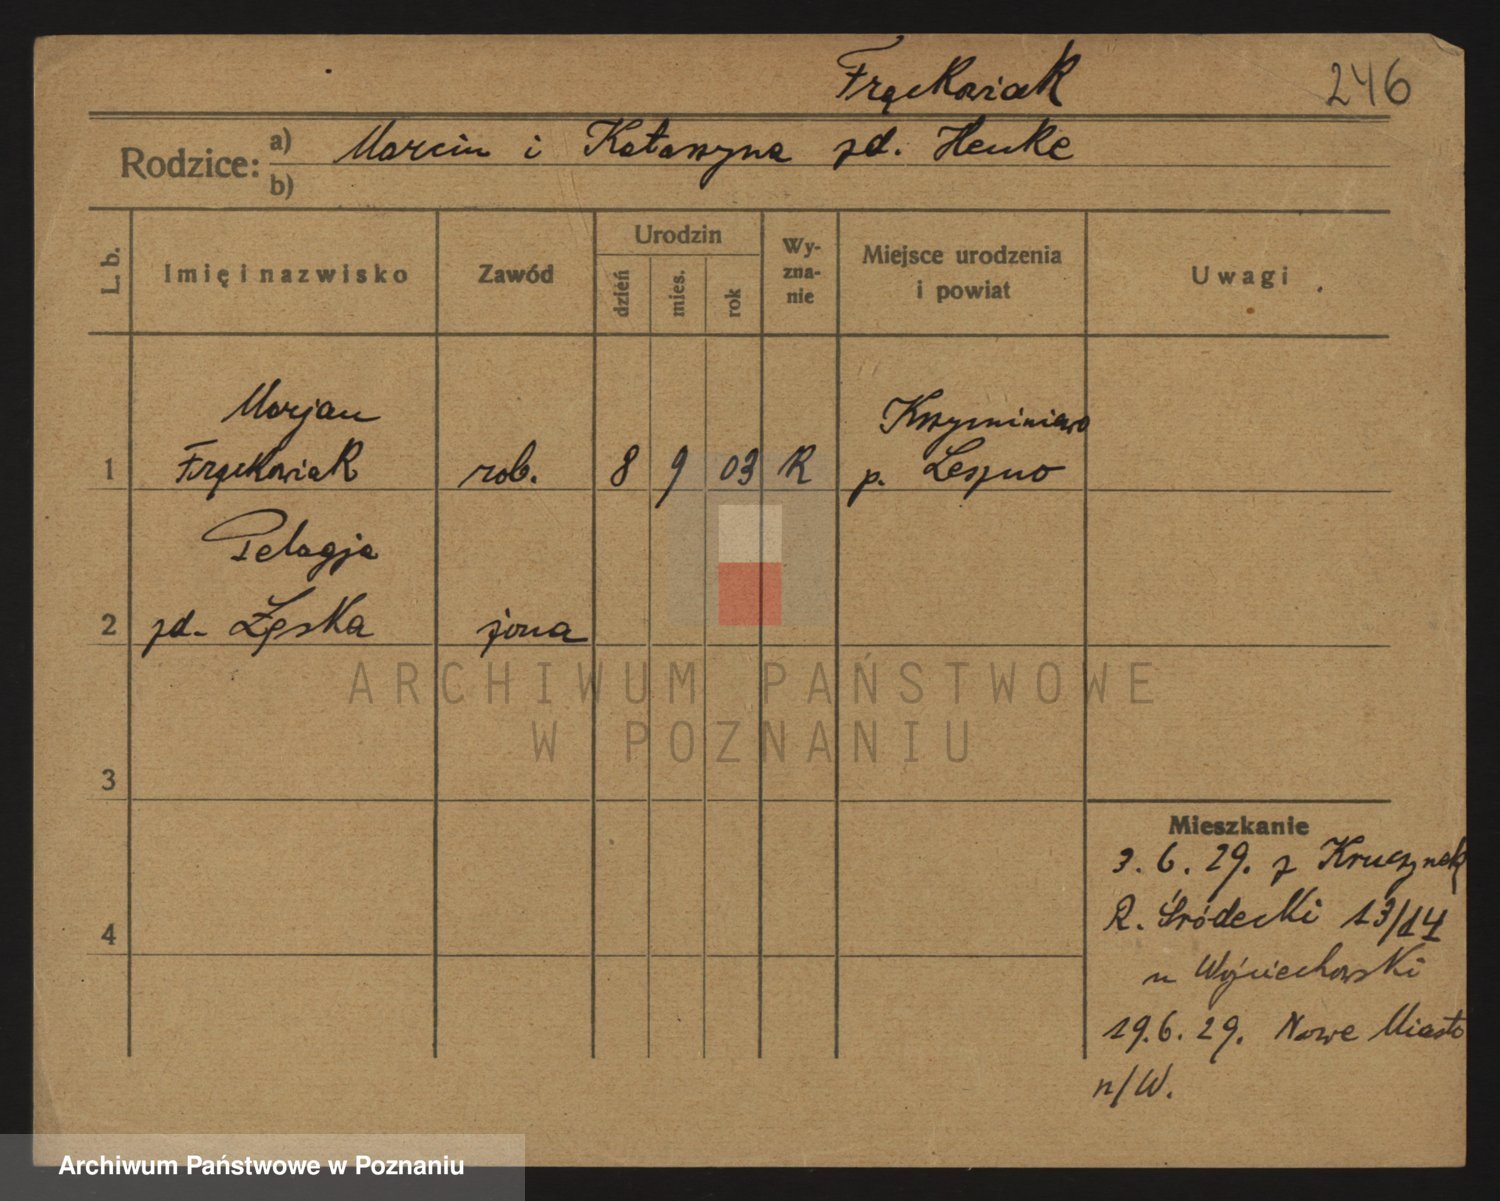 Frąckowiak 246
Rodzice: a) Marcin i Katarzyna zd. Henke
b)
L. b. Imię i nazwisko Zawód Urodzin dzień mies. rok Wyznanie Miejsce urodzenia i powiat Uwagi
Marjan
1 Frąckowiak rob. 8 9 03 R p. Leszno
Pelagja
2 zd. Łęska żona
ARCHIWUM PAŃSTWOWE
W POZNANIU
3
Mieszkanie
3. 6. 29. z
4 R. Śródecki 13/14
u Wojciechowski
19. 6. 29. Nowe Miasto
n/W.
Archiwum Państwowe w Poznaniu